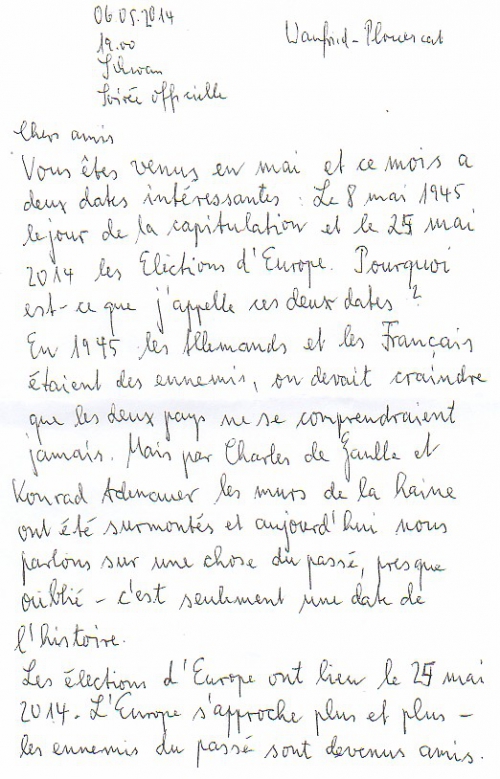 06.05.2014
19.00
Schwan
Soirée officielle
Wanfried-Plouescat
Chers amis
Vous êtes venus en mai et ce mois a
deux dates intéressantes : Le 8 mai 1945
le jour de la capitulation et le 25 mai
2014 les Elections d'Europe. Pourquoi
est-ce que j'appelle ces deux dates ?
En 1945 les Allemands et les Français
étaient des ennemis, on devait craindre
que les deux pays ne se comprendraient
jamais. Mais par Charles de Gaulle et
Konrad Adenauer les murs de la haine
ont été surmontés et aujourd'hui nous
parlons sur une chose du passé, presque
oublié - c'est seulement une date de
l'histoire.
Les élections d'Europe ont lieu le 25 mai
2014. L'Europe s'approche plus et plus -
les ennemis du passé sont devenus amis.